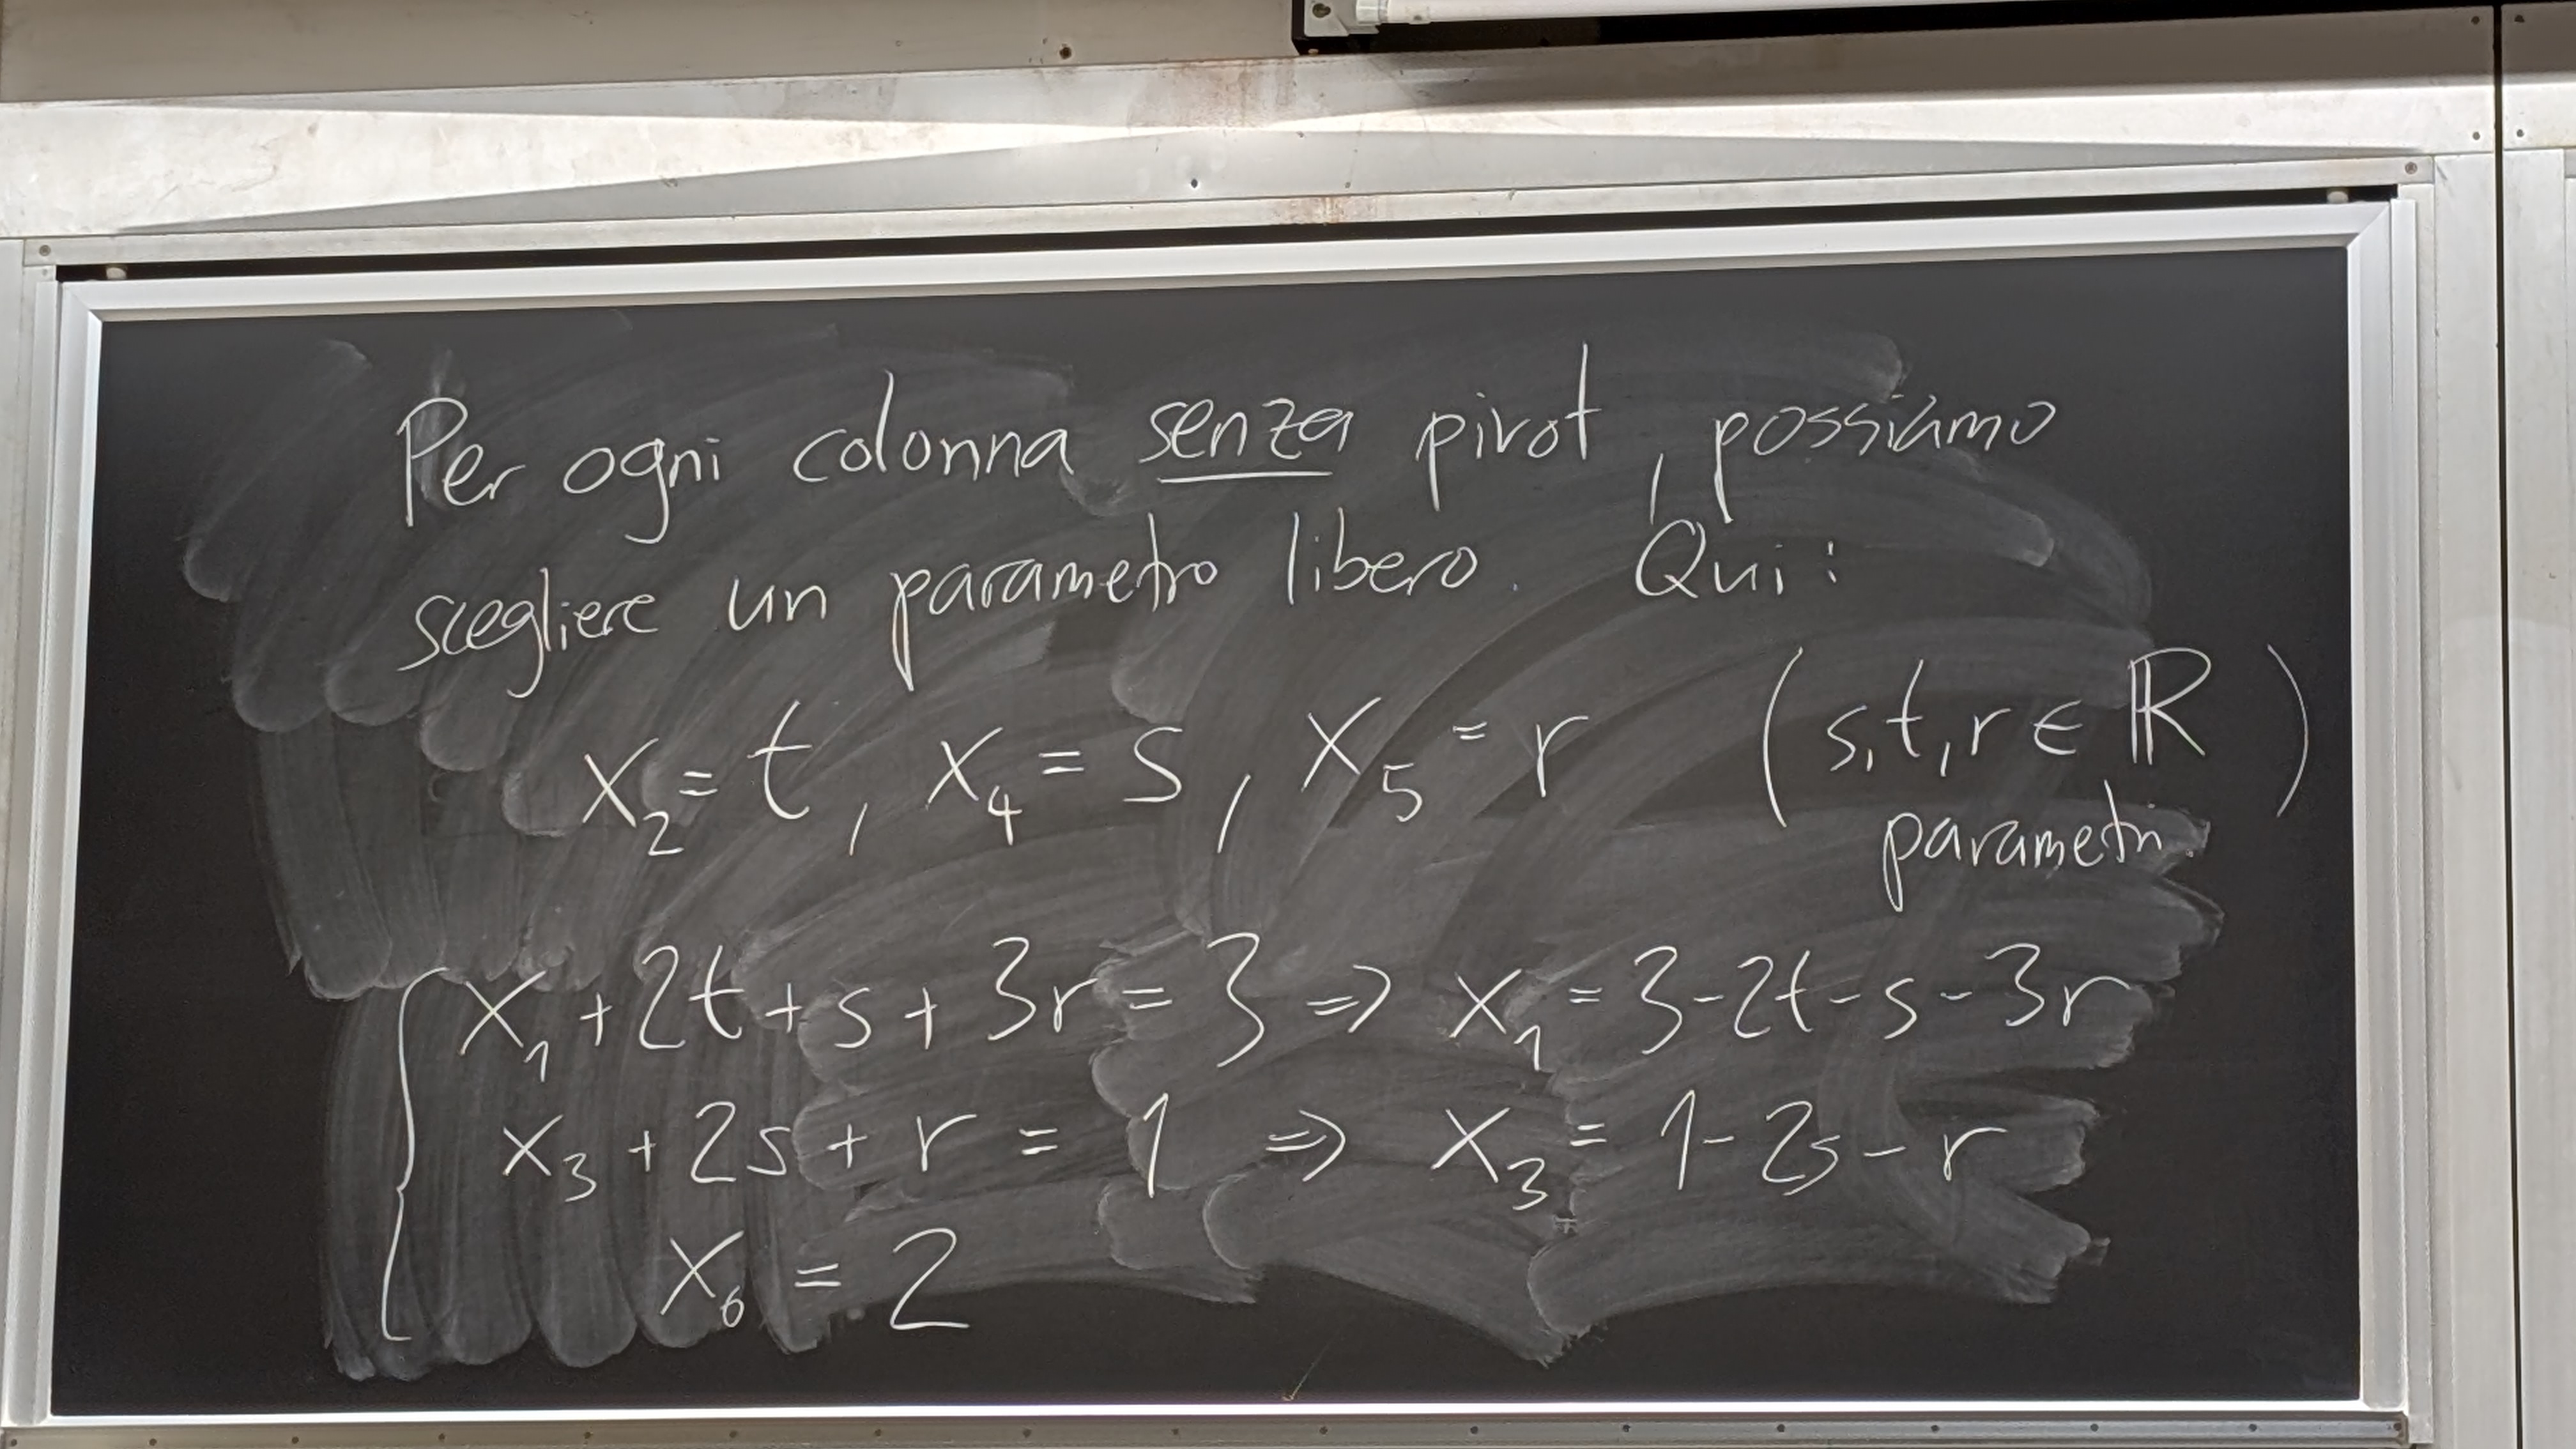 Per ogni colonna senza pivot, possiamo
scegliere un parametro libero. Qui:
x₂ = t, x₄ = s, x₅ = r (s, t, r ∈ ℝ)
parametri.
x₁ + 2t + s + 3r = 3 ⇒ x₁ = 3 - 2t - s - 3r
x₃ + 2s + r = 1 ⇒ x₃ = 1 - 2s - r
x₆ = 2